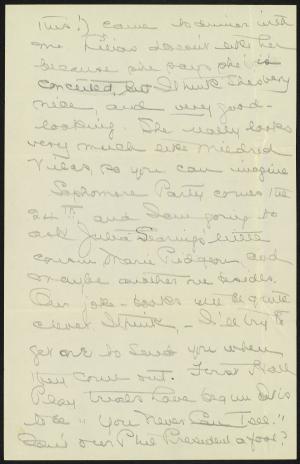 this!) came to dinner with
me. Lilias doesn't like her
because she says she is
conceited, but I think she's very
nice, and very good-
looking. She really looks
very much like Mildred
Vilas, so you can imagine
Sophomore Party comes the
24th and I am going to
ask Julia Searing's little
cousin Marie Pidgeon and
maybe another one besides.
Our joke-books will be quite
clever I think, - I'll try to
get one to send you when
they come out. First Hall
Play trials have begun. It is
to be "You Never Can Tell."
Isn't our Phil President a poor?